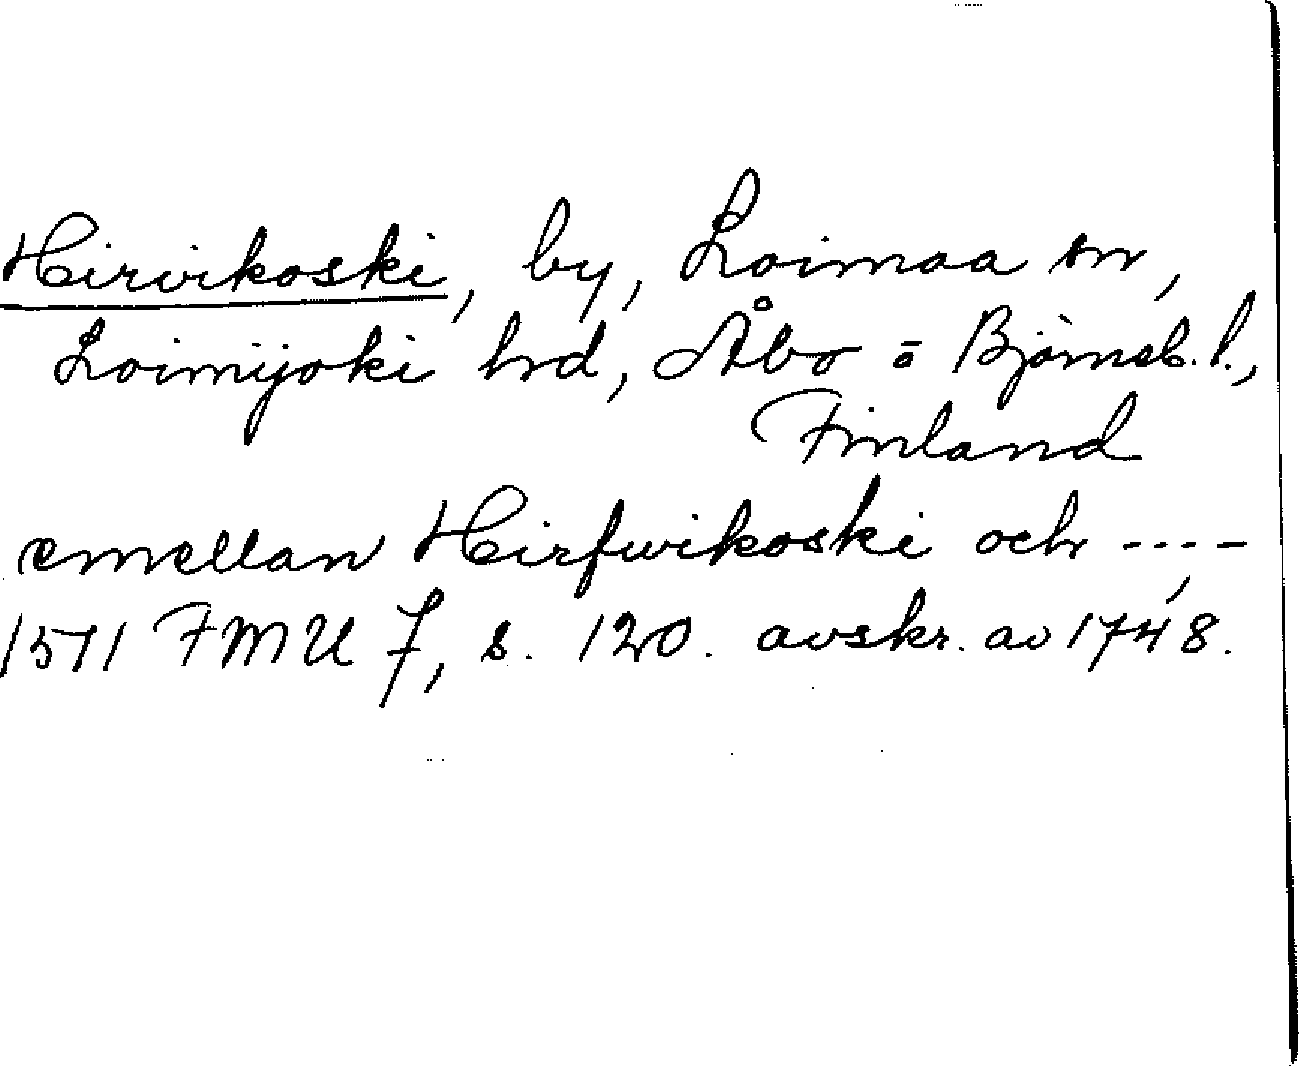 Hirvikoski, by, Loimaa sn,
Loimijoki hrd, Åbo o Björneb. l.,
Finland
emellan Hirfwikoski och ----,
1511 FMU 7, s. 120. avskr. av 1748.